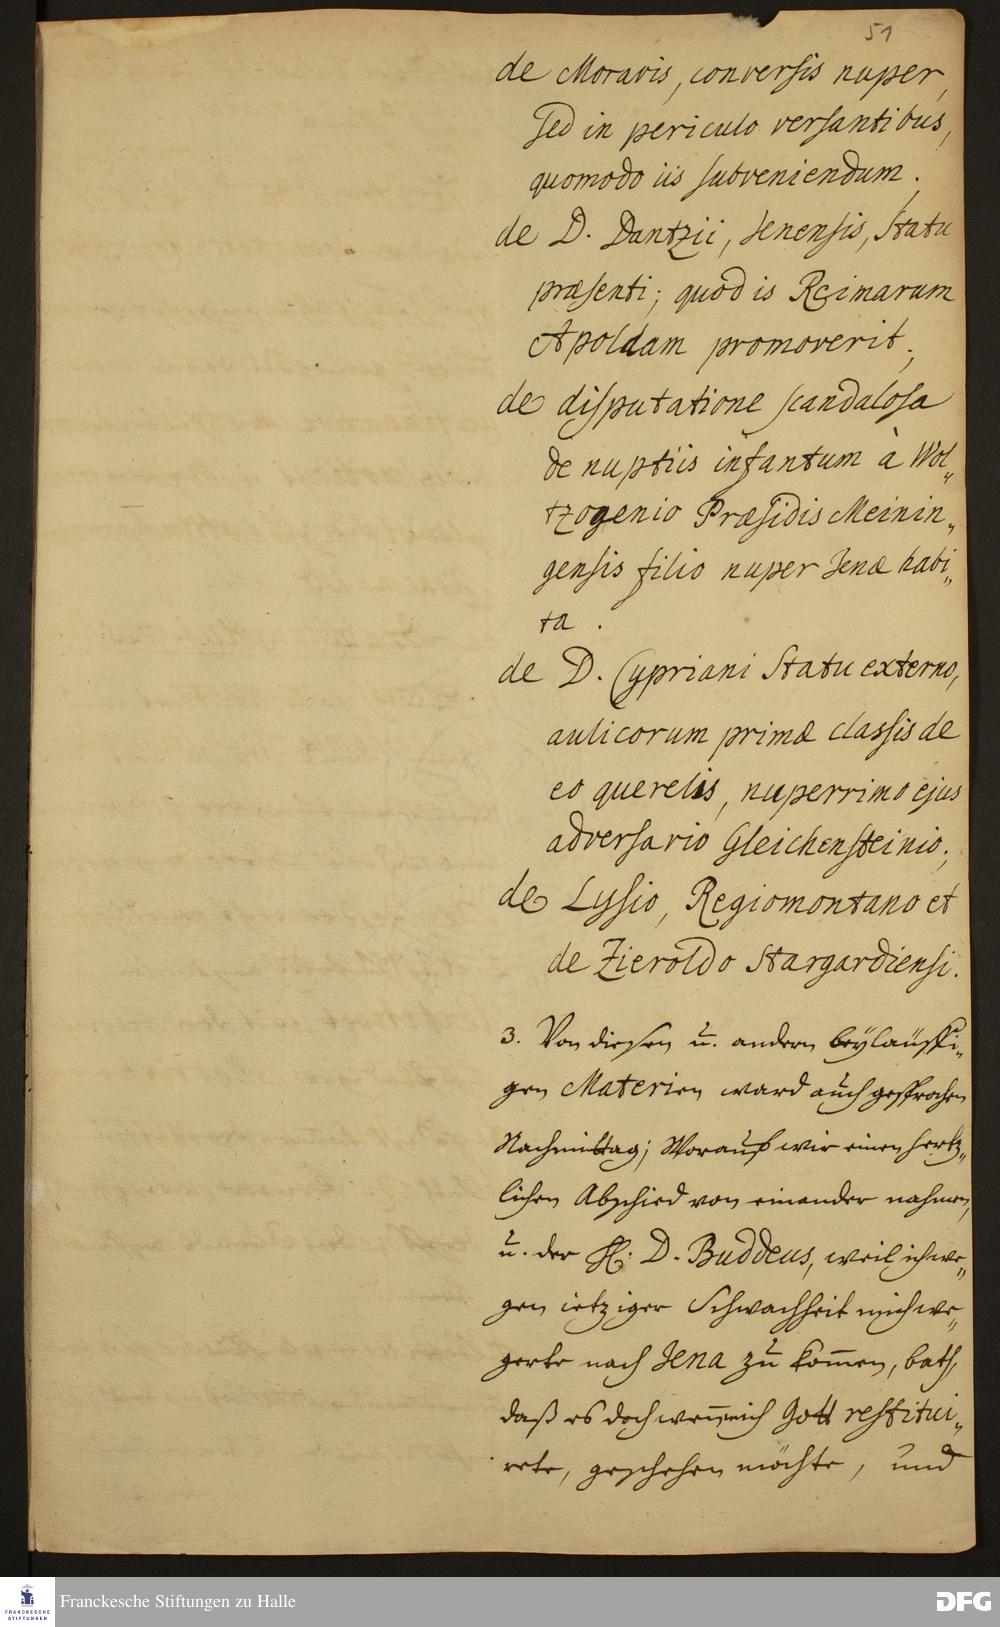 51
de Moravis, conversis nuper,
sed in periculo versantibus,
quomodo iis subveniendum;
de D. Dantzii, Jenensis, statu
præsenti; quod is Reimarum
Apoldam promoverit;
de disputatione scandalosa
de nuptiis infantum à Wol„
tzogenio Præsidis Meinin„
gensis filio nuper Jenæ habi„
ta.
de D. Cypriani statu externo,
aulicorum primæ classis de
eo querelis, nuperrimo ejus
adversario Gleichensteinio;
de Lysio, Regiomontano et
de Zieroldo Stargardiensi.
3. Von diesen u. andern beyläuffi„
gen Materien ward auch gesprochen
Nachmittag; Worauf wir einen hertz„
lichen Abschied von einander nahmen,
u. der H. D. Buddeus, weil ich we„
gen ietziger Schwachheit mich we„
gerte nach Jena zu kom̄en, bath,
daß es doch wen̄ mich Gott restitui„
rete, geschehen möchte, und
Franckesche Stiftungen zu Halle
FRANCKESCHE
STIFTUNGEN
DFG